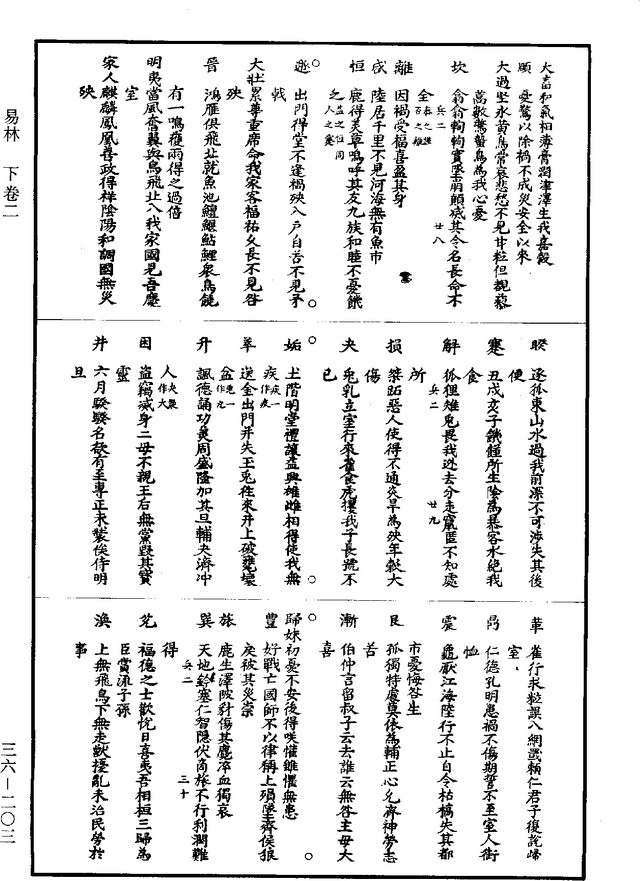 大畜和氣相薄膏潤津澤生我嘉穀
頤　憂驚以除禍不成災安全以來
大過坚冰黃鳥常哀悲愁不見甘粒但覩藜
蒿數驚鷙鳥為我心憂
坎　翕翕輷輷實墜崩顛滅其令名長命不
全
離　因禍受福喜盈其身
咸　陸居千里不見河海無有魚市
恒　鹿得美草鳴呼其友九族和睦不憂饑
乏
遯　出門得堂不逢禍殃入戶自苦不見矛
戟
大壯累尊重席命我家客福祐久長不見咎
殃
晉　鴻雁俱飛北就魚池鱣鰋鮎鯉衆鳥饒
有一鳴獲兩得之過倍
明夷當風奮翼與鳥飛北入我家國見吾慶
室
家人麒麟鳳凰善政得祥陰陽和調國無災
殃
睽　逐狐東山水過我前深不可涉失其後
便
蹇　丑戌亥子饑饉所生陰為暴客水絕我
食
解　狐狸雉兔畏我逃去分走竄匿不知處
所
損　桀跖惡人使得不通炎旱為殃年穀大
傷
夬　兔乳立室行來雀食虎攫我子長號不
已
姤　土階明堂禮讓益興雄雌相得使我無
疾
萃　送金出門并失玉兔往來井上破甕壞
盆
升　諷德誦功美周盛隆加其旦輔夬濟冲
人
困　盜竊滅身二母不親王后無黨毀其寶
靈
井　六月騤騤各欲有至專正未裝俟侍明
旦
革　雀行求粒誤入網罟賴仁君子復說歸
室
鼎　仁德孔明患禍不傷期誓不至室人銜
恤
震　龜厭江海陸行不止自令枯槁失其都
市憂悔咎生
艮　孤獨特處莫依為輔正心允齊神勞志
苦
漸　伯仲言留叔子云去誰云無咎主母大
喜
歸妹初憂不安後得咲懽雖懼無患
豐　好戰亡國師不以律稱上殞墜齊侯狼
戾被其災祟
旅　鹿生澤陂豺傷其麑卒血獨哀
巽　天地鈴塞仁智隱伏商旅不行利潤難
得
兌　福德之士歡悅日喜夷吾相桓三歸為
臣賞流子孫
渙　上無飛鳥下無走獸擾亂未治民勞於
事
易林　下卷二
三六—二〇三